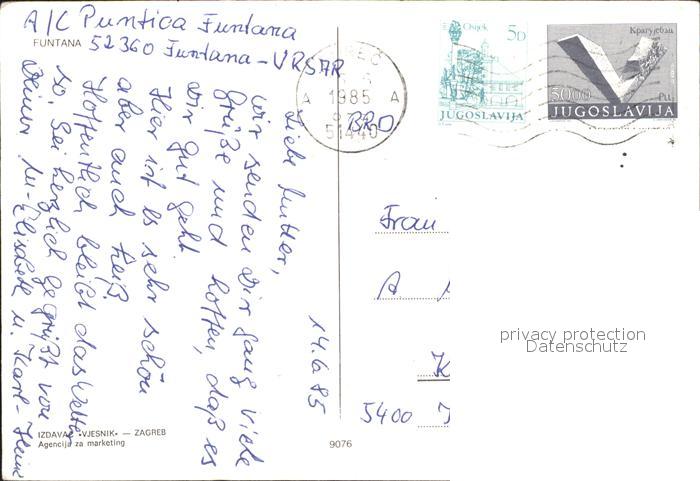 A/C Puntica Funtana
FUNTANA 52360 Funtana - VRSAR
14.6.85
Liebe Mutter,
wir senden Dir ganz viele
Grüße und hoffen, daß es
Dir gut geht.
Hier ist es sehr schön
aber auch heiß.
Hoffentlich bleibt das Wetter
so. Sei herzlich gegrüßt von
Deiner M-Elisabeth u. Karl-Heinz
IZDAVAČ «VJESNIK» — ZAGREB
Agencija za marketing
9076
1985
A A
51440
BRD
Osijek
5D
JUGOSLAVIJA
Крагујевац
5000
JUGOSLAVIJA
Frau
A
K
5400
privacy protection
Datenschutz